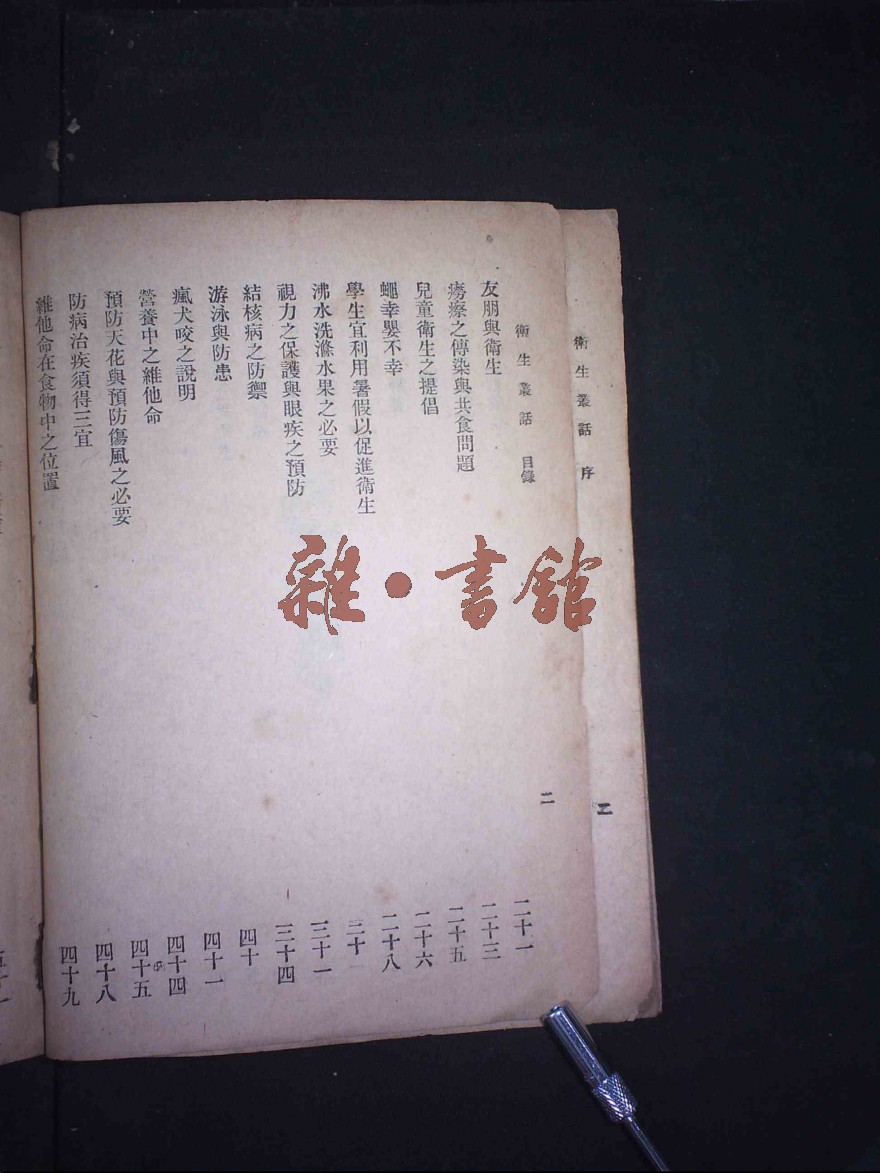 衛生叢話 序
衛生叢話 目錄 二
友朋與衛生 二十一
癆瘵之傳染與共食問題 二十三
兒童衛生之提倡 二十五
蠅幸嬰不幸 二十六
學生宜利用暑假以促進衛生 二十八
沸水洗滌水果之必要 三十
視力之保護與眼疾之預防 三十一
結核病之防禦 三十四
游泳與防患 四十
瘋犬咬之說明 四十一
營養中之維他命 四十四
預防天花與預防傷風之必要 四十五
防病治疾須得三宜 四十八
維他命在食物中之位置 四十九
雜·書館